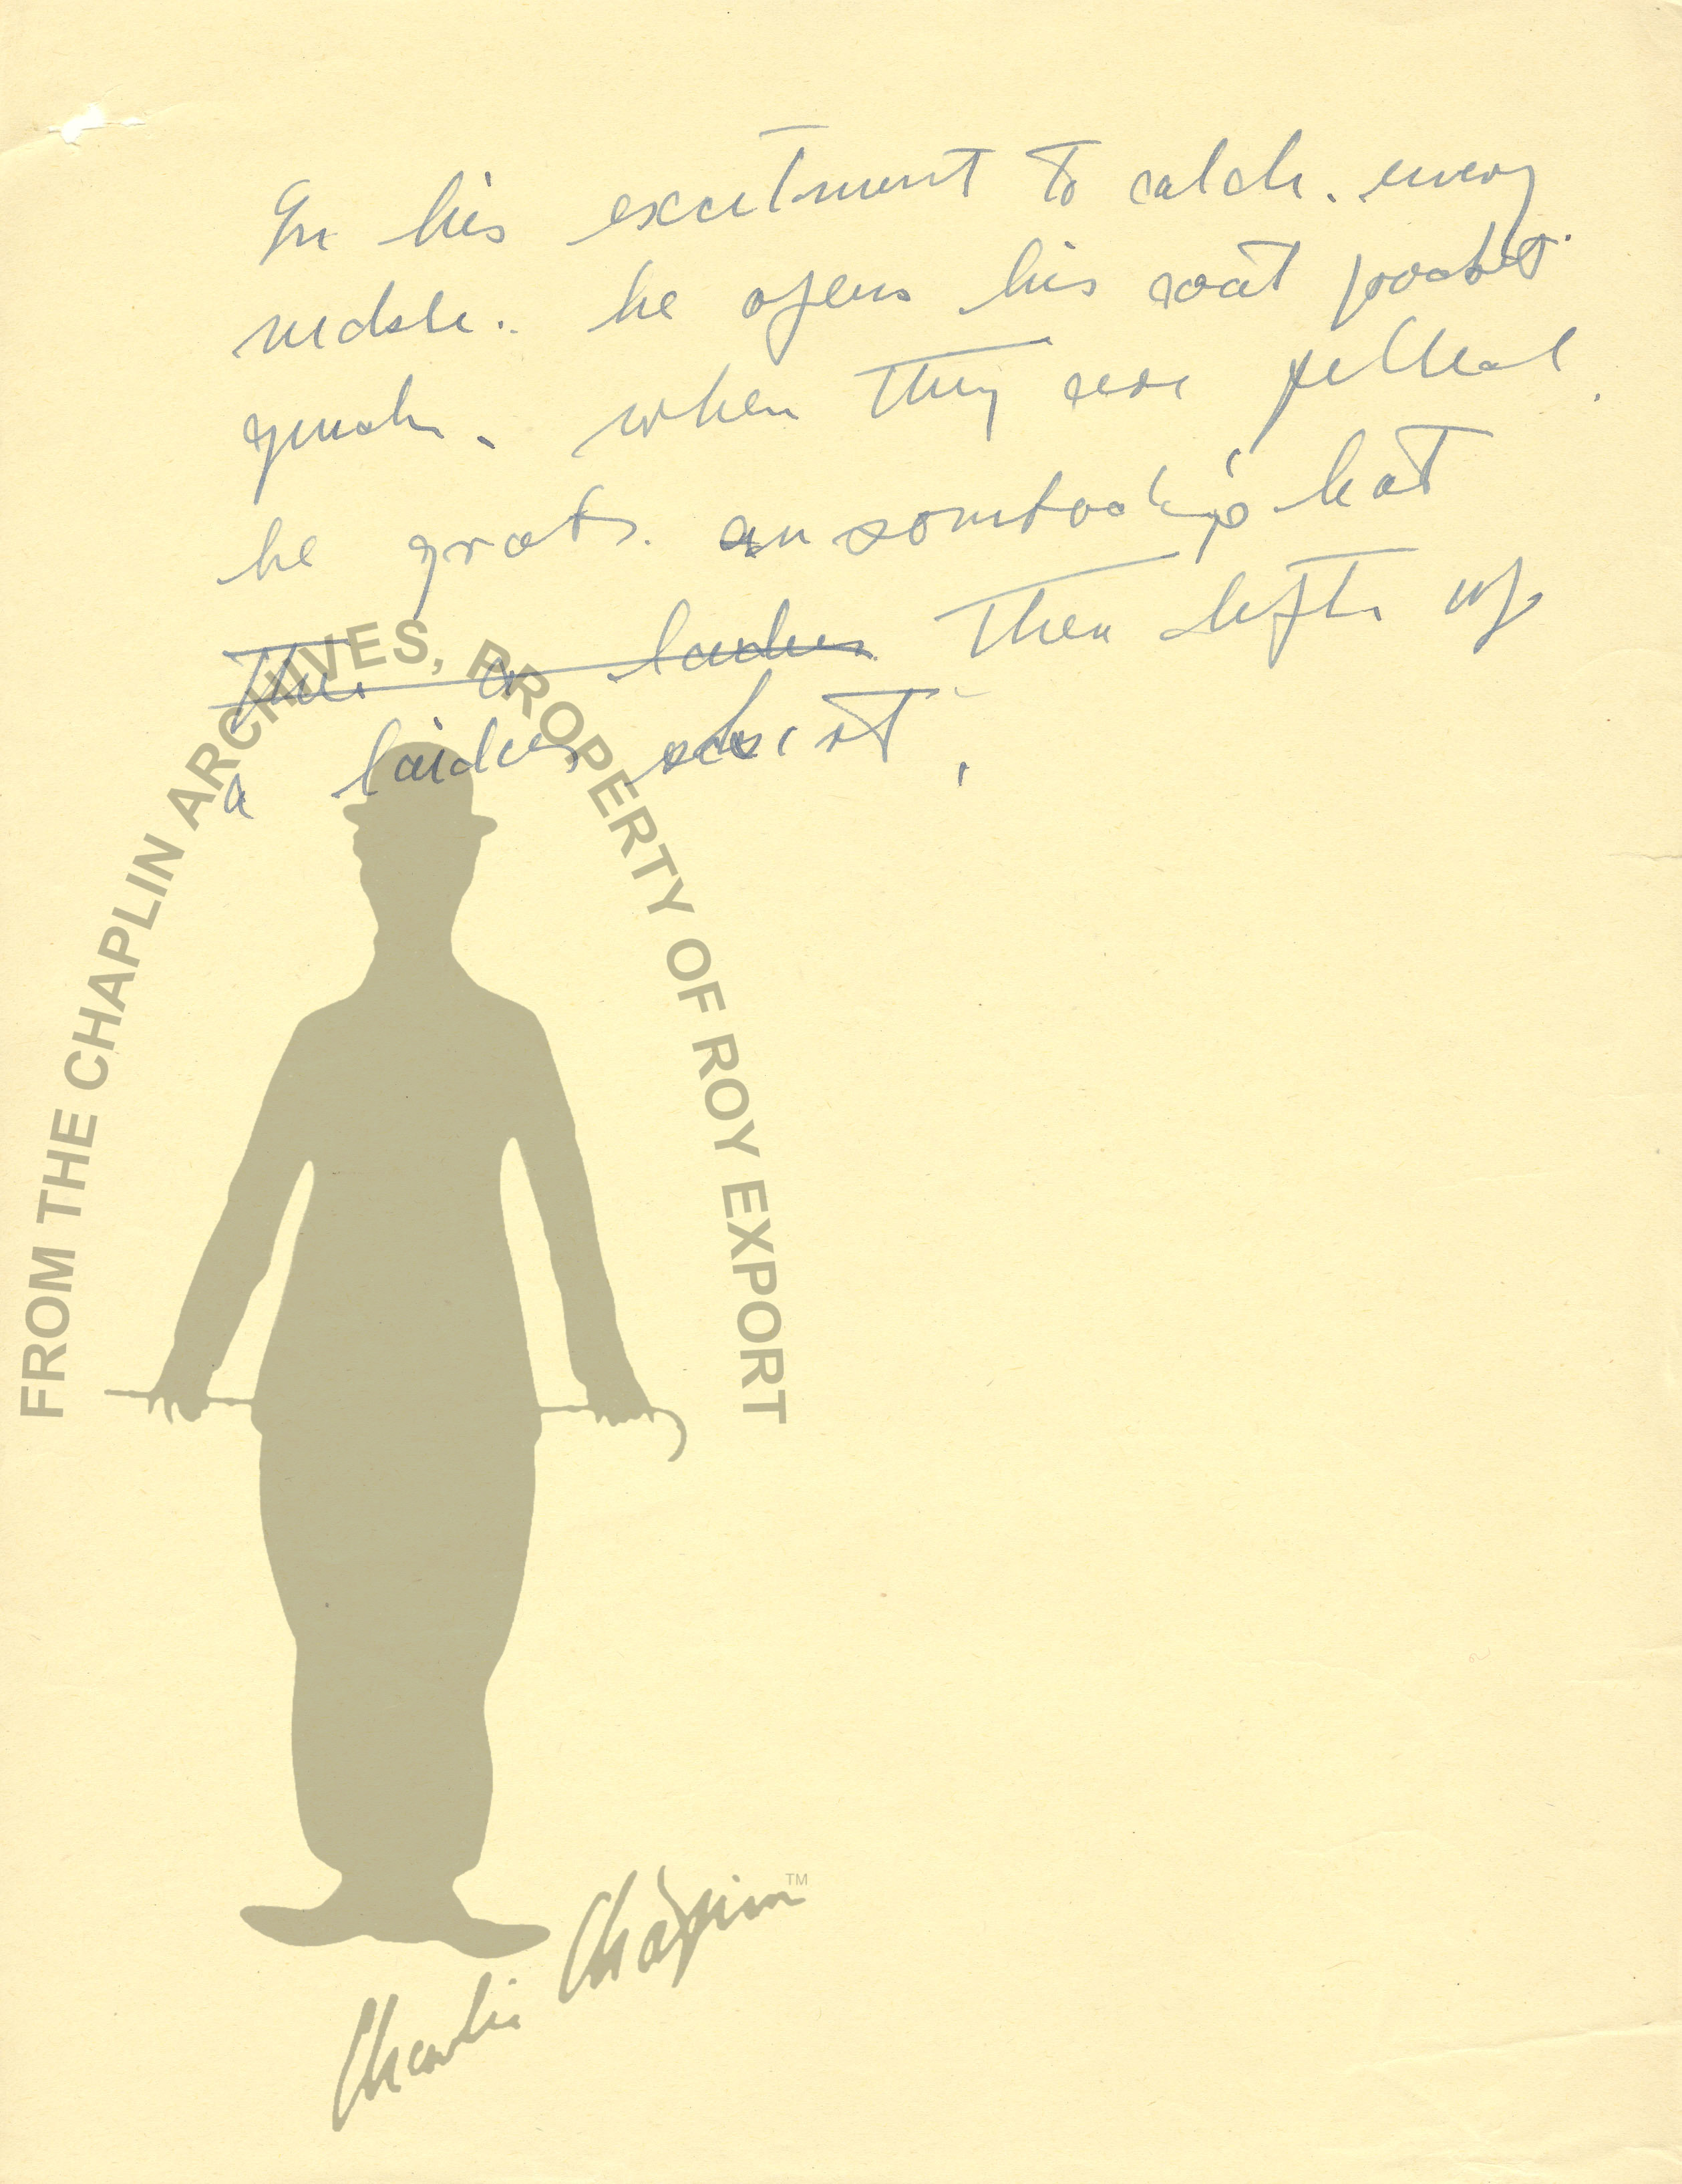 In his excitment to catch. every
nickle.. he opens his coat pocket
when they are filled.
he grabs. sombody's hat
The. a ladies Then lifts up
a laidies skirt.
FROM THE CHAPLIN ARCHIVES, PROPERTY OF ROY EXPORT
Charlie Chaplin™